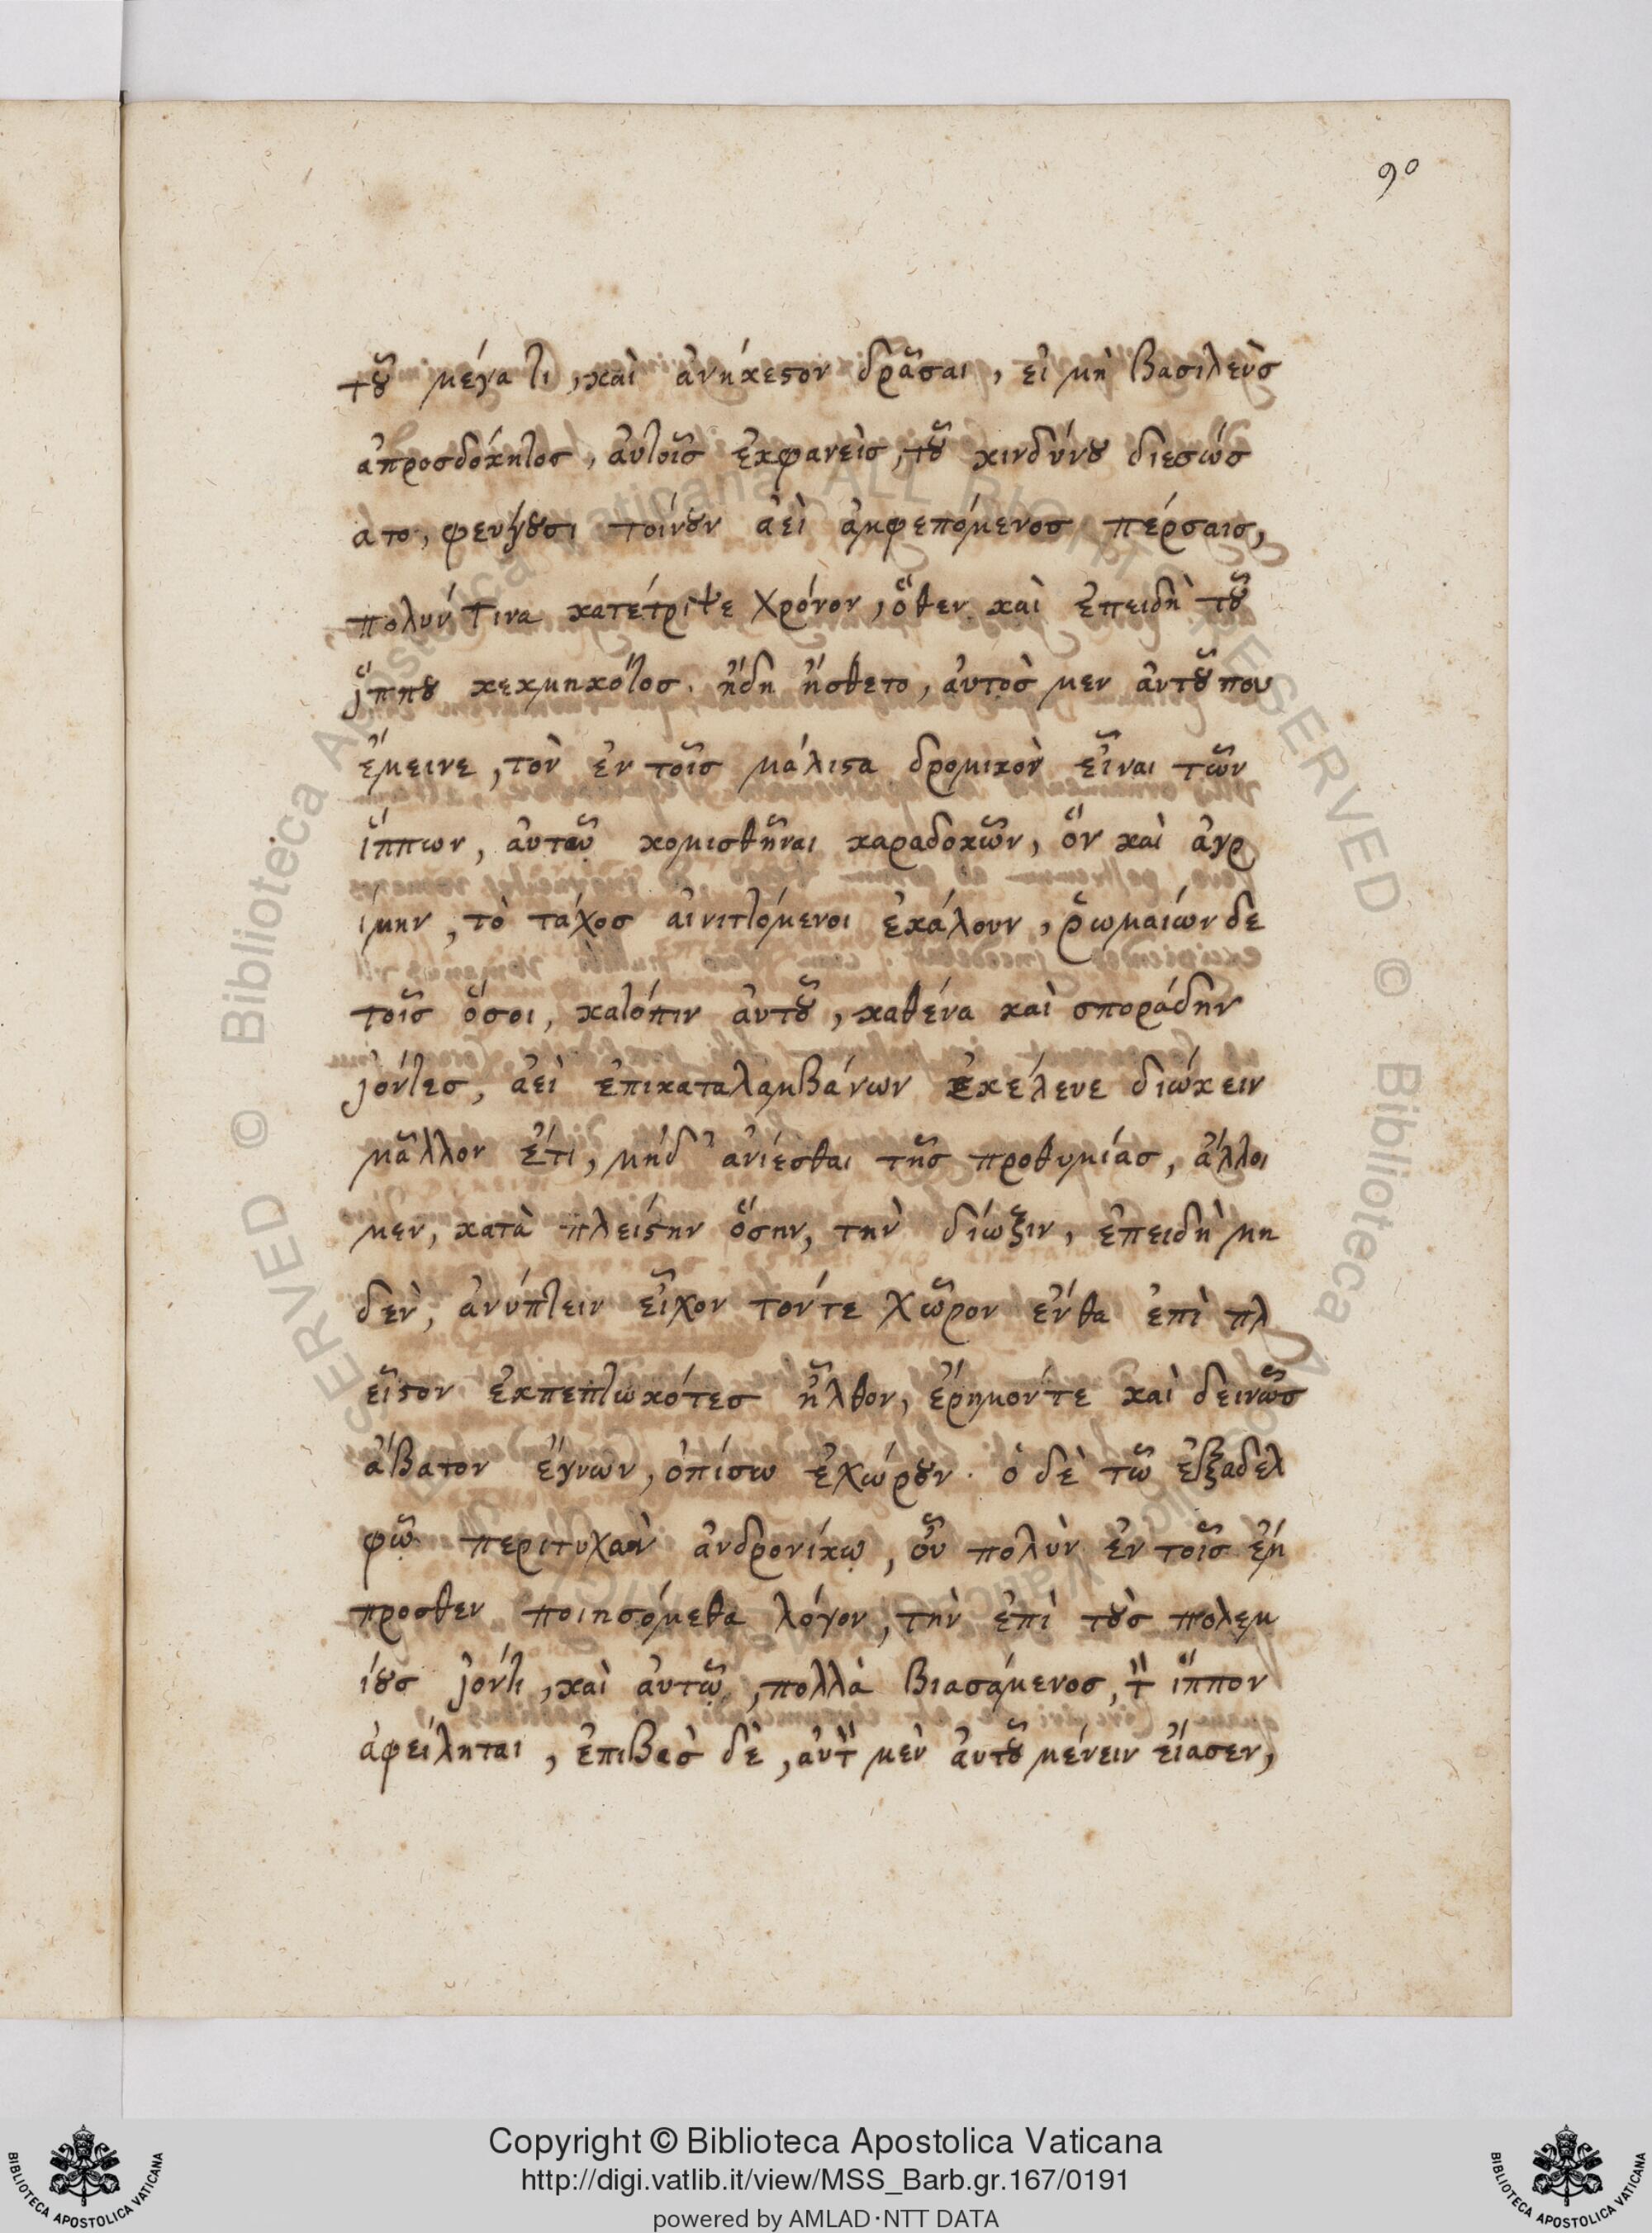 90
τοῦ μέγα τι, καὶ ἀνήκεστον δρᾶσαι, εἰ μὴ βασιλεὺς
ἀπροσδόκητος, ἀυτοῖς ἐκφανεὶς, τοῦ κινδύνου διεσώσ
ατο, φευγουσι τοίνυν ἀεὶ ἀμφεπόμενος πέρσαις,
πολυν τινα κατέτριψε χρόνον, ὅθεν καὶ ἐπειδὴ τοῦ
ἵππου κεκμηκότος. ἤδη ἤσθετο, ἀυτὸς μεν ἀυτοῦ που
ἔμεινε, τὸν ἐν τοῖς μάλιστα δρομικὸν εἶναι τῶν
ἵππων, ἀυτῷ κομισθῆναι καραδοκῶν, ὅν καὶ ἀγρ
ίμην, τὸ τάχος αἰνιττόμενοι ἐκάλουν, ῥωμαίων δε
τοῖς ὅσοι, κατόπιν ἀυτοῦ, καθένα καὶ σποράδην
ἰόντες, ἀεὶ ἐπικαταλαμβάνων ἐκέλευε διώκειν
μᾶλλον ἔτι, μήδ' ἀνίεσθαι τῆς προθυμίας, ἄλλοι
μεν, κατὰ πλείστην ὅσην, τὴν δίωξιν, ἐπειδὴ μη
δὲν, ἀνύπτειν εἶχον τόντε χῶρον ἔνθα ἐπὶ πλ
εῖστον ἐκπεπτωκότες ἦλθον, ἔρημόντε καὶ δεινῶς
ἄβατον ἔγνων, ὀπίσω ἐχώρουν. ὁ δὲ τῶ ἐξαδελ
φῷ περιτυχὼν ἀνδρονίκῳ, οὗ πολὺν ἐν τοῖς ἔμ
προσθεν ποιησόμεθα λόγον, τὴν ἐπὶ τοὺς πολεμ
ίους ἰόντι, καὶ ἀυτῷ, πολλὰ βιασάμενος, τὸν ἵππον
ἀφείληται, ἐπιβὰς δὲ, ἀυτὸν μὲν ἀυτοῦ μένειν εἴασεν,
Copyright © Biblioteca Apostolica Vaticana
http://digi.vatlib.it/view/MSS_Barb.gr.167/0191
powered by AMLAD·NTT DATA